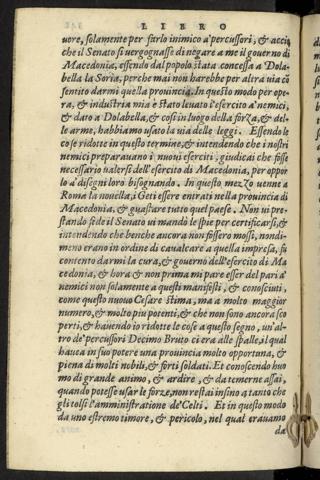 LIBRO
uore, solamente per farlo inimico a'percussori, & acciò
che il Senato si vergognasse di negare a me il gouerno di
Macedonia, essendo dal popolo stata concessa a Dola-
bella la Soria, perche mai non harebbe per altra uia cō
sentito darmi quella prouincia. In questo modo per ope-
ra, & industria mia è stato leuato l'esercito a'nemici,
& dato a Dolabella, & cosi in luogo della forza, & del-
le arme, habbiamo usato la uia delle leggi. Essendo le
cose ridotte in questo termine, & intendendo che i nostri
nemici preparauano i nuoui eserciti, giudicai che fosse
necessario ualersi dell'esercito di Macedonia, per oppor
lo a'disegni loro bisognando. In questo mezzo uenne a
Roma la nouella, i Geti essere entrati nella prouincia di
Macedonia, & guastare tutto quel paese. Non ui pre-
stando fede il Senato ui mandò le spie per certificarsi, &
intendendo che benche ancora non fossero mossi, nondi-
meno erano in ordine di caualcare a quella impresa, fu
contento darmi la cura, & gouerno dell'esercito di Ma
cedonia, & hora & non prima mi pare esser del pari a'
nemici non solamente a questi manifesti, & conosciuti,
come questo nuouo Cesare stima, ma a molto maggior
numero, & molto piu potenti, & che non sono ancora sco
perti, & hauendo io ridotte le cose a questo segno, un'al-
tro de'percussori Decimo Bruto ci era alle spalle, il qual
hauea in suo potere una prouincia molto opportuna, &
piena di molti nobili, & forti soldati. Et conoscendo huo
mo di grande animo, & ardire, & da temerne assai,
quando potesse usar le forze, non restai insino a tanto che
gli tolsi l'amministratione de'Celti. Et in questo modo
da uno estremo timore, & pericolo, nel qual erauamo
da